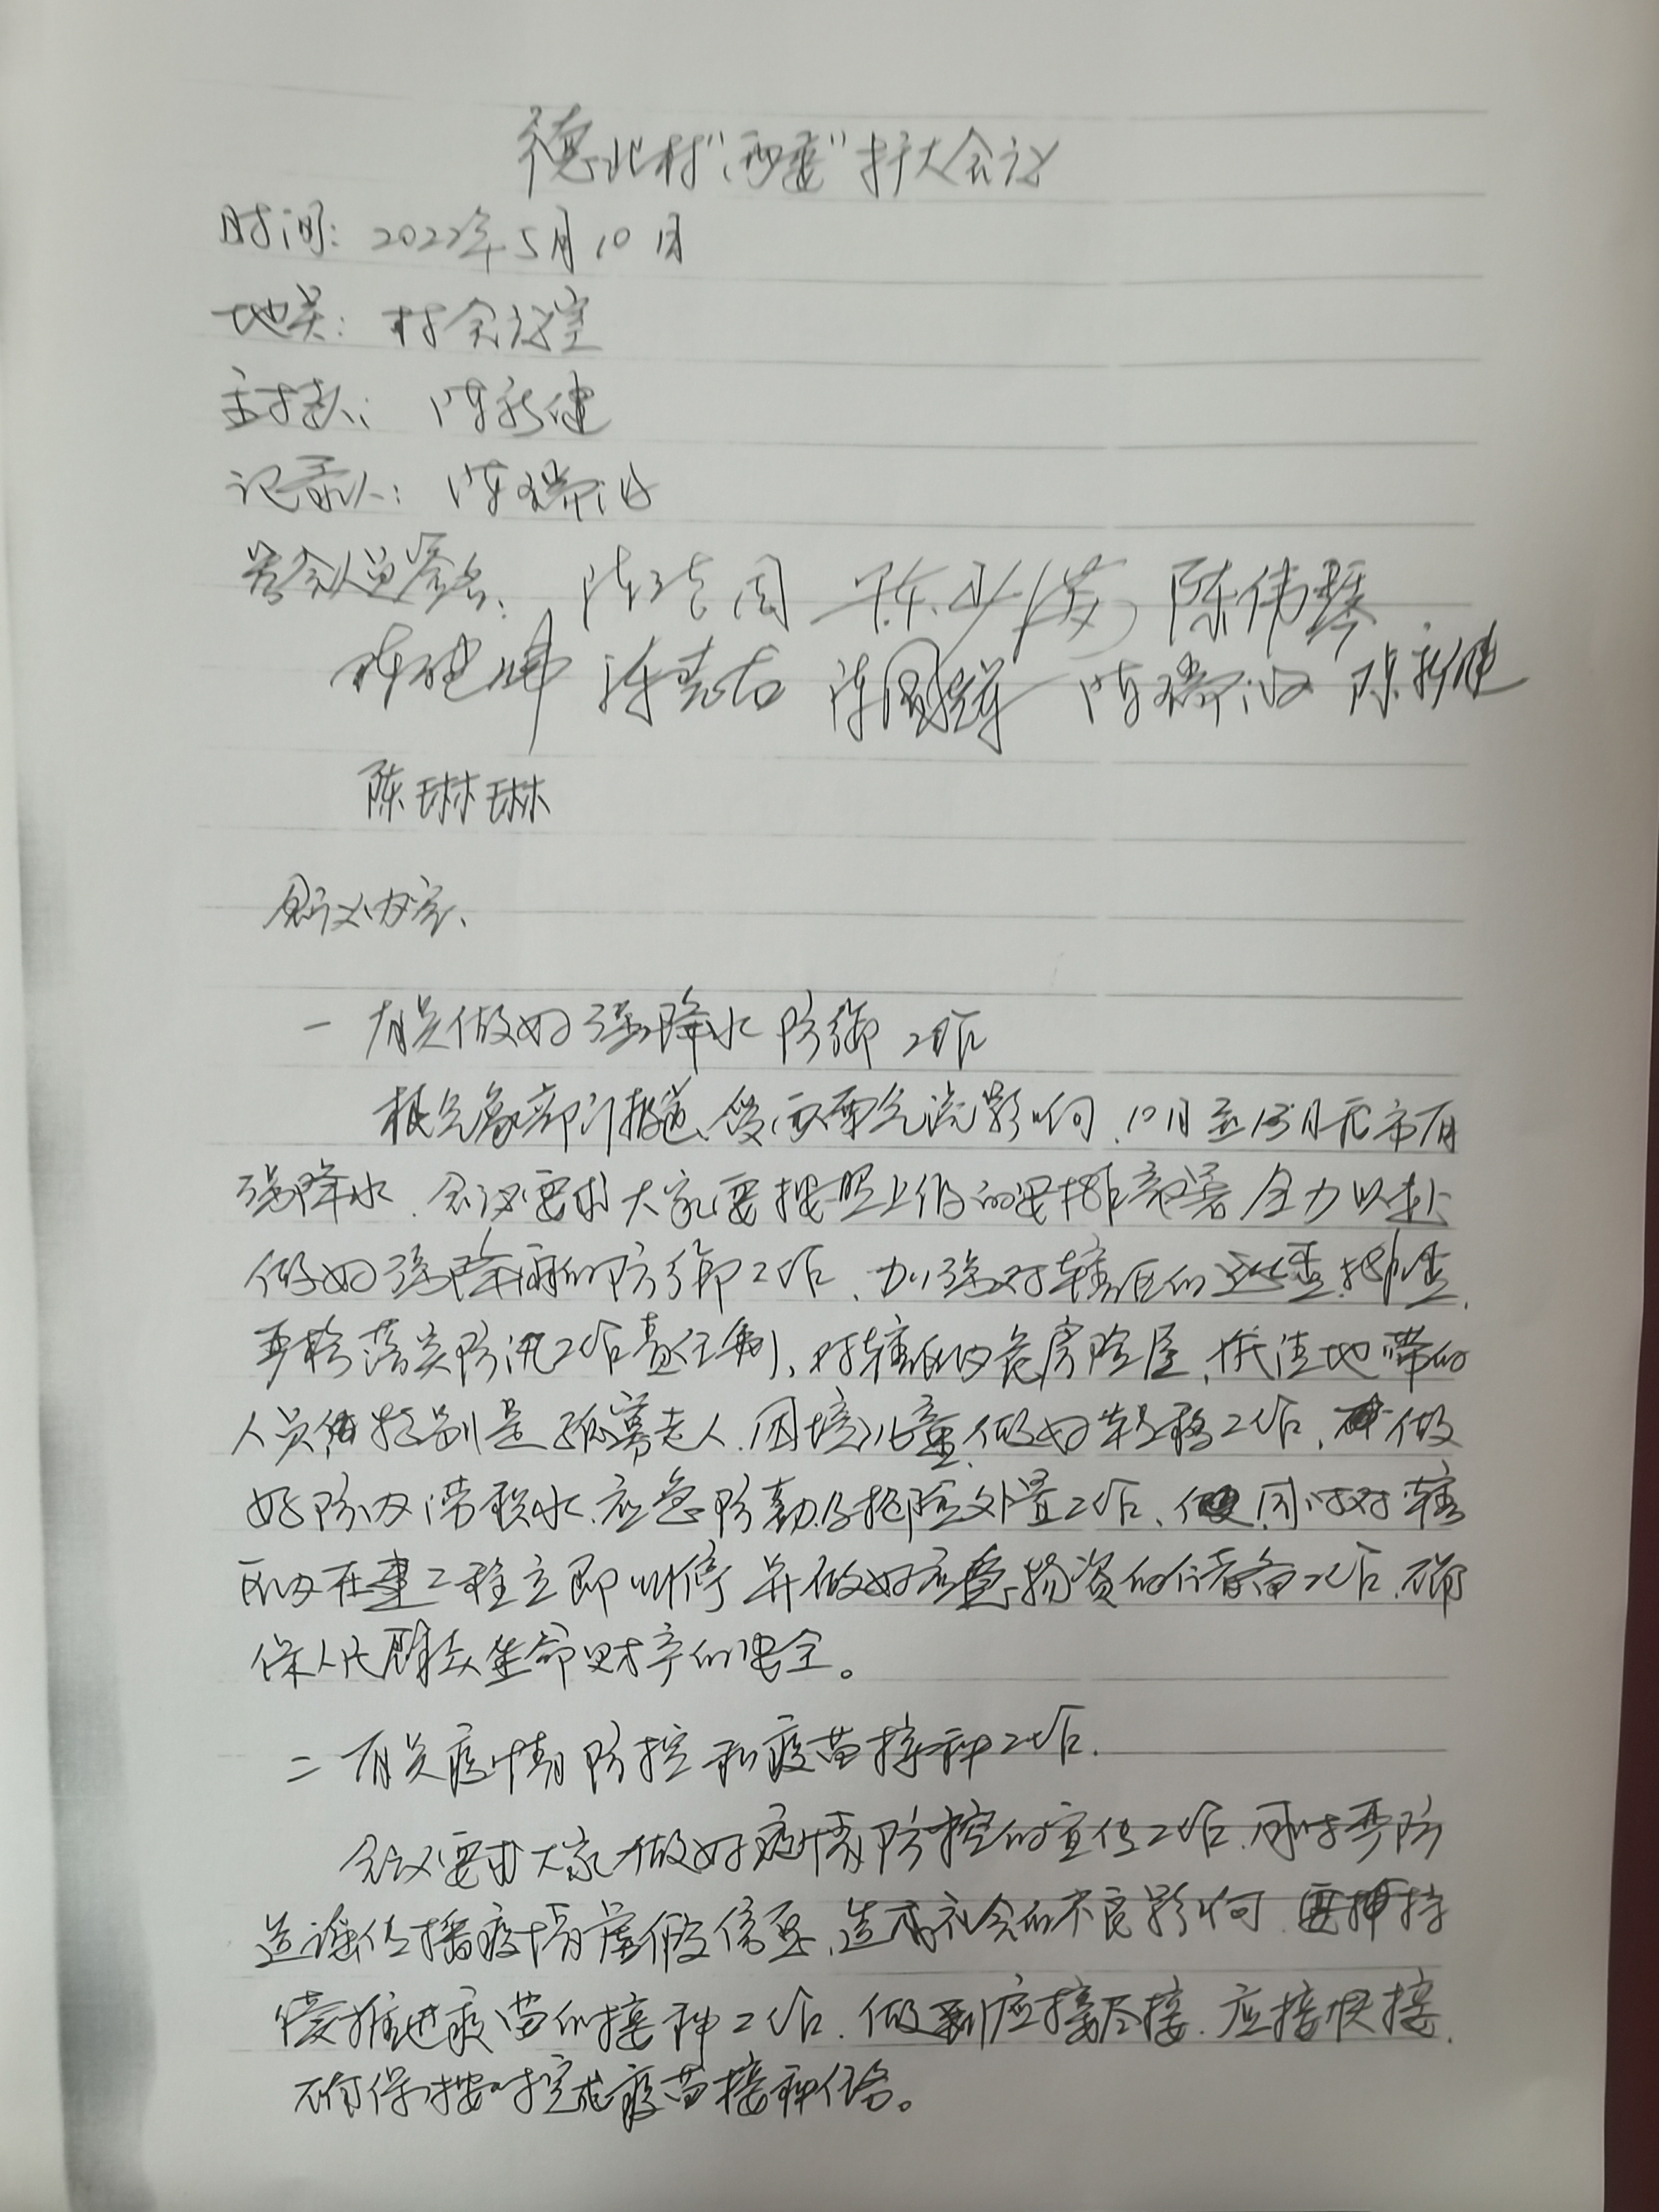 德北村“两委”扩大会议
时间：2022年5月10日
地点：村会议室
主持人：陈新健
记录人：陈瑞
参会人员签名： 陈 陈少 陈伟琴
陈 陈 陈 陈瑞 陈新健
陈琳琳
会议内容、
一 有关做好强降水防御工作
根气象部门报道、受西南气流影响、10日至13日我市有
强降水、会议要求大家要按照上级的安排部署全力以赴
做好强降雨的防御工作、加强对辖区的巡查、排查、
严格落实防汛工作责任制、对辖区内危房险屋、低洼地带的
人员特别是孤寡老人、困境儿童、做好转移工作、做
好防内涝积水、应急防勤及抢险处置工作、同时对辖
区内在建工程立即叫停并做好应急物资的储备工作、确
保人民群众生命财产的安全。
二 有关疫情防控和疫苗接种工作.
会议要求大家做好疫情防控的宣传工作、同时严防
造谣传播疫情虚假信息、造成社会的不良影响、要持
续推进疫苗的接种工作、做到应接尽接、应接快接、
确保按时完成疫苗接种任务。